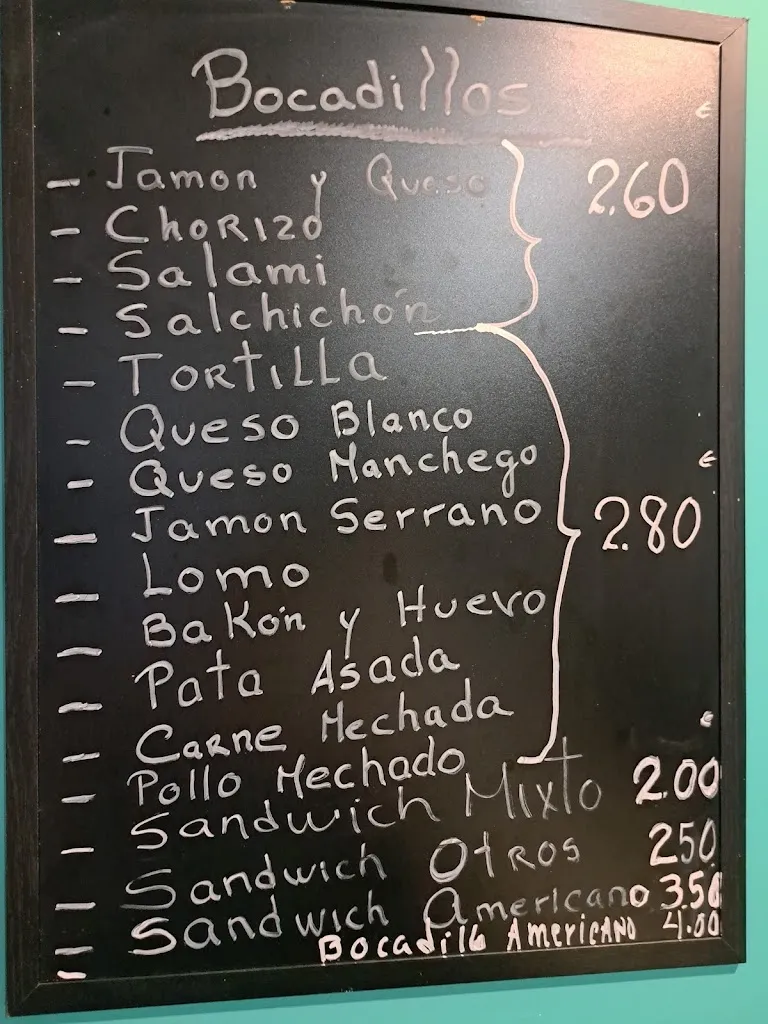 Bocadillos
- Jamon y Queso 2.60 €
- Chorizo
- Salami
- Salchichón
- Tortilla
- Queso Blanco
- Queso Manchego
- Jamon Serrano 2.80 €
- Lomo
- Bakón y Huevo
- Pata Asada
- Carne Mechada
- Pollo Mechado
- Sandwich Mixto 2.00 €
- Sandwich Otros 250
- Sandwich Americano 3.50
- Bocadillo Americano 4.00